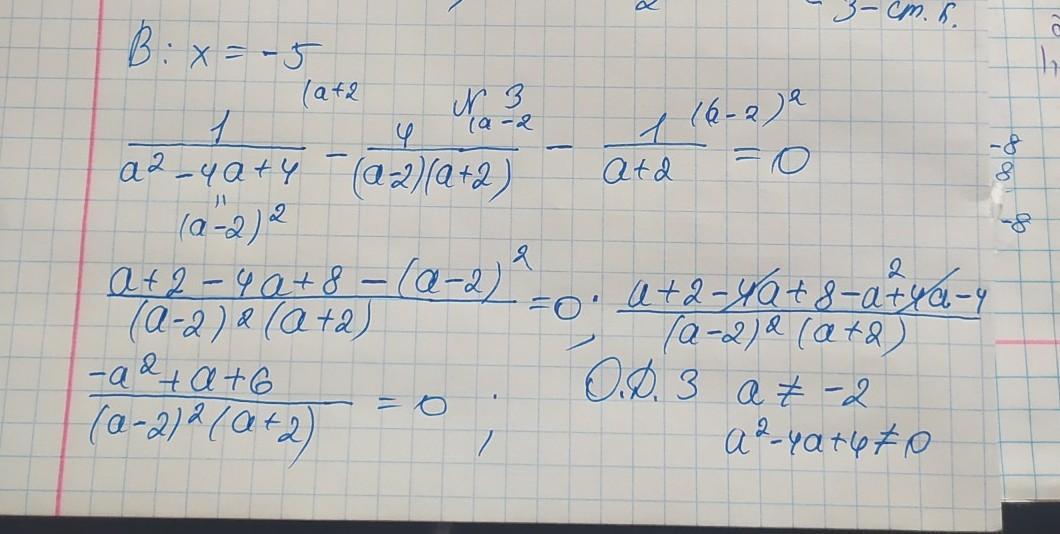 2 - 3 - ст. к.
В: x = -5
N 3
(a+2 (a-2 (a-2)²
1/(a² - 4a + 4) - 4/((a-2)(a+2)) - 1/(a+2) = 0
"
(a-2)²
(a+2 - 4a + 8 - (a-2)²)/((a-2)²(a+2)) = 0; (a+2 - 4a + 8 - a² + 4a - 4)/((a-2)²(a+2))
(-a² + a + 6)/((a-2)²(a+2)) = 0 ; О.Д.З a ≠ -2
a² - 4a + 4 ≠ 0
-8
8
-8